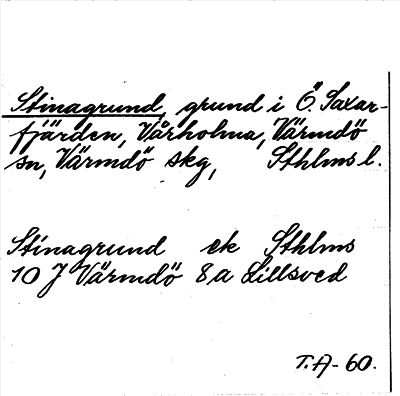 Stinagrund, grund i Ö. Saxar-
fjärden, Vårholma, Värmdö
sn, Värmdö skg, Sthlms l.
Stinagrund ek Sthlms
10 J Värmdö 8 a Lillsved
T.A-60.